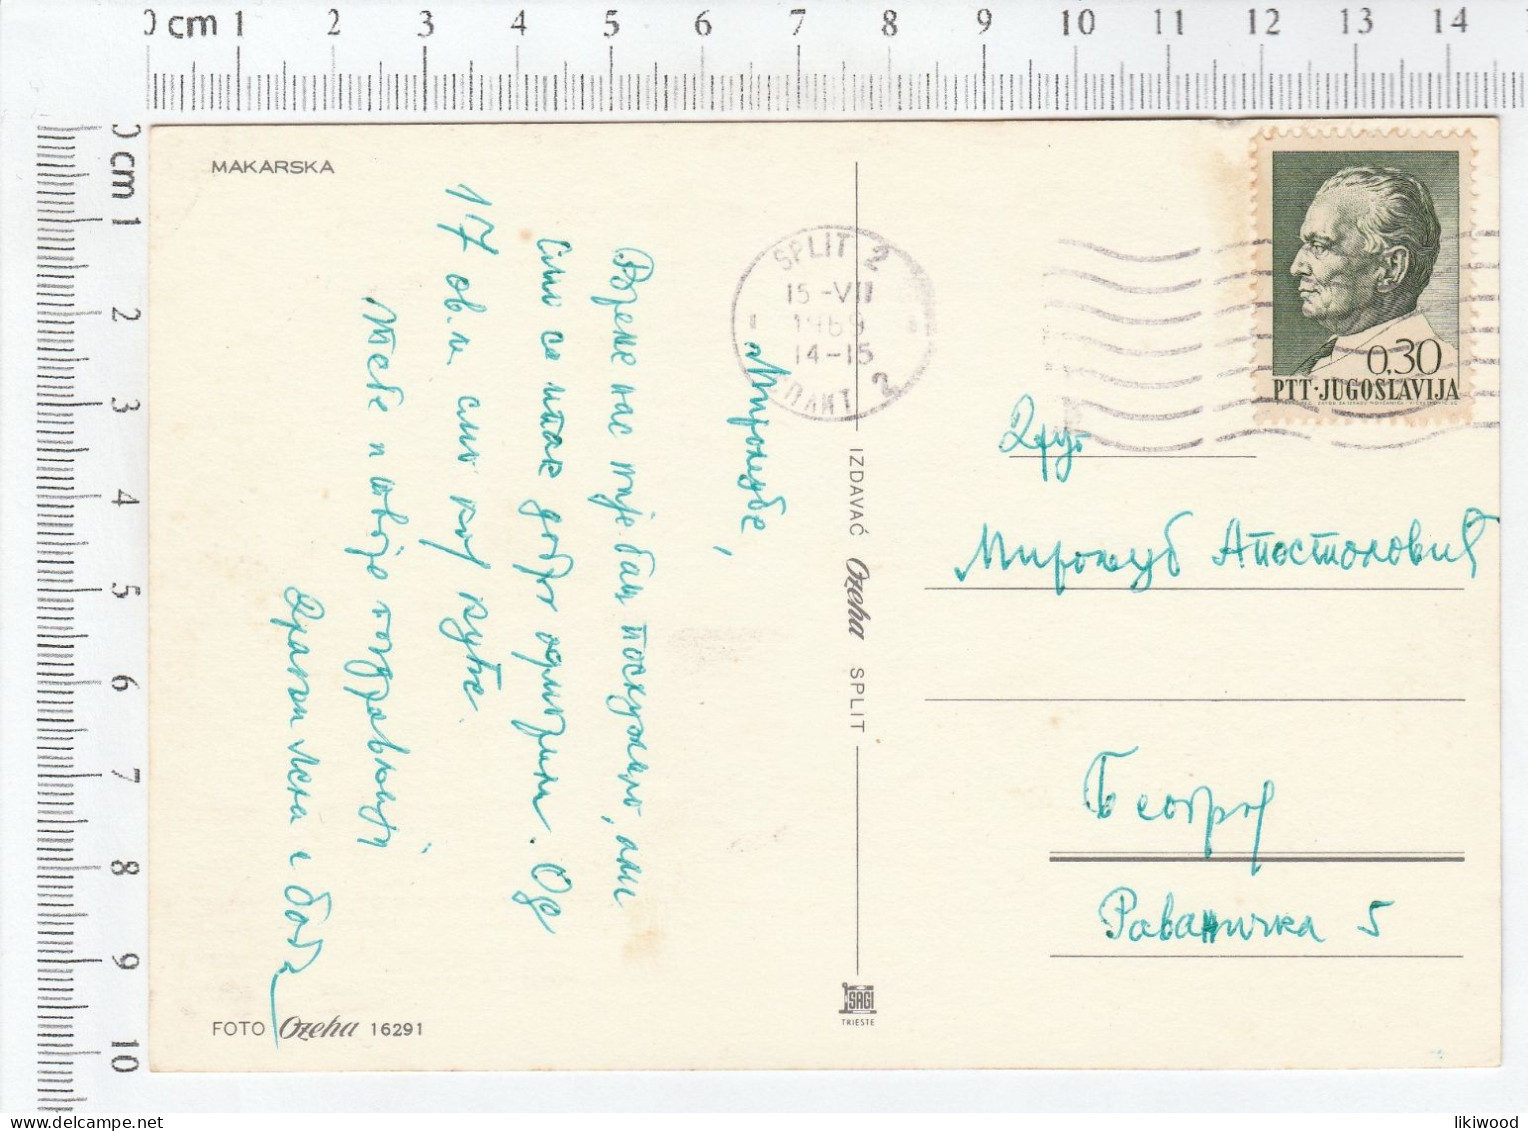 0 cm 1 2 3 4 5 6 7 8 9 10 11 12 13 14
0 cm 1 2 3 4 5 6 7 8 9 10
MAKARSKA
Мирољубе,
Време нас није баш послужило, али
смо се ипак добро одморили. Од
17 ов. м. смо код куће.
Тебе и твоје поздрављају
Драган Лена и Боба
FOTO Ozeha 16291
IZDAVAČ Ozeha SPLIT
SAGI
TRIESTE
SPLIT 2
15-VII
1969
14-15
СПЛИТ 2
0,30
PTT·JUGOSLAVIJA
Друг
Мирољуб Апостоловић
Београд
Раваничка 5
likiwood